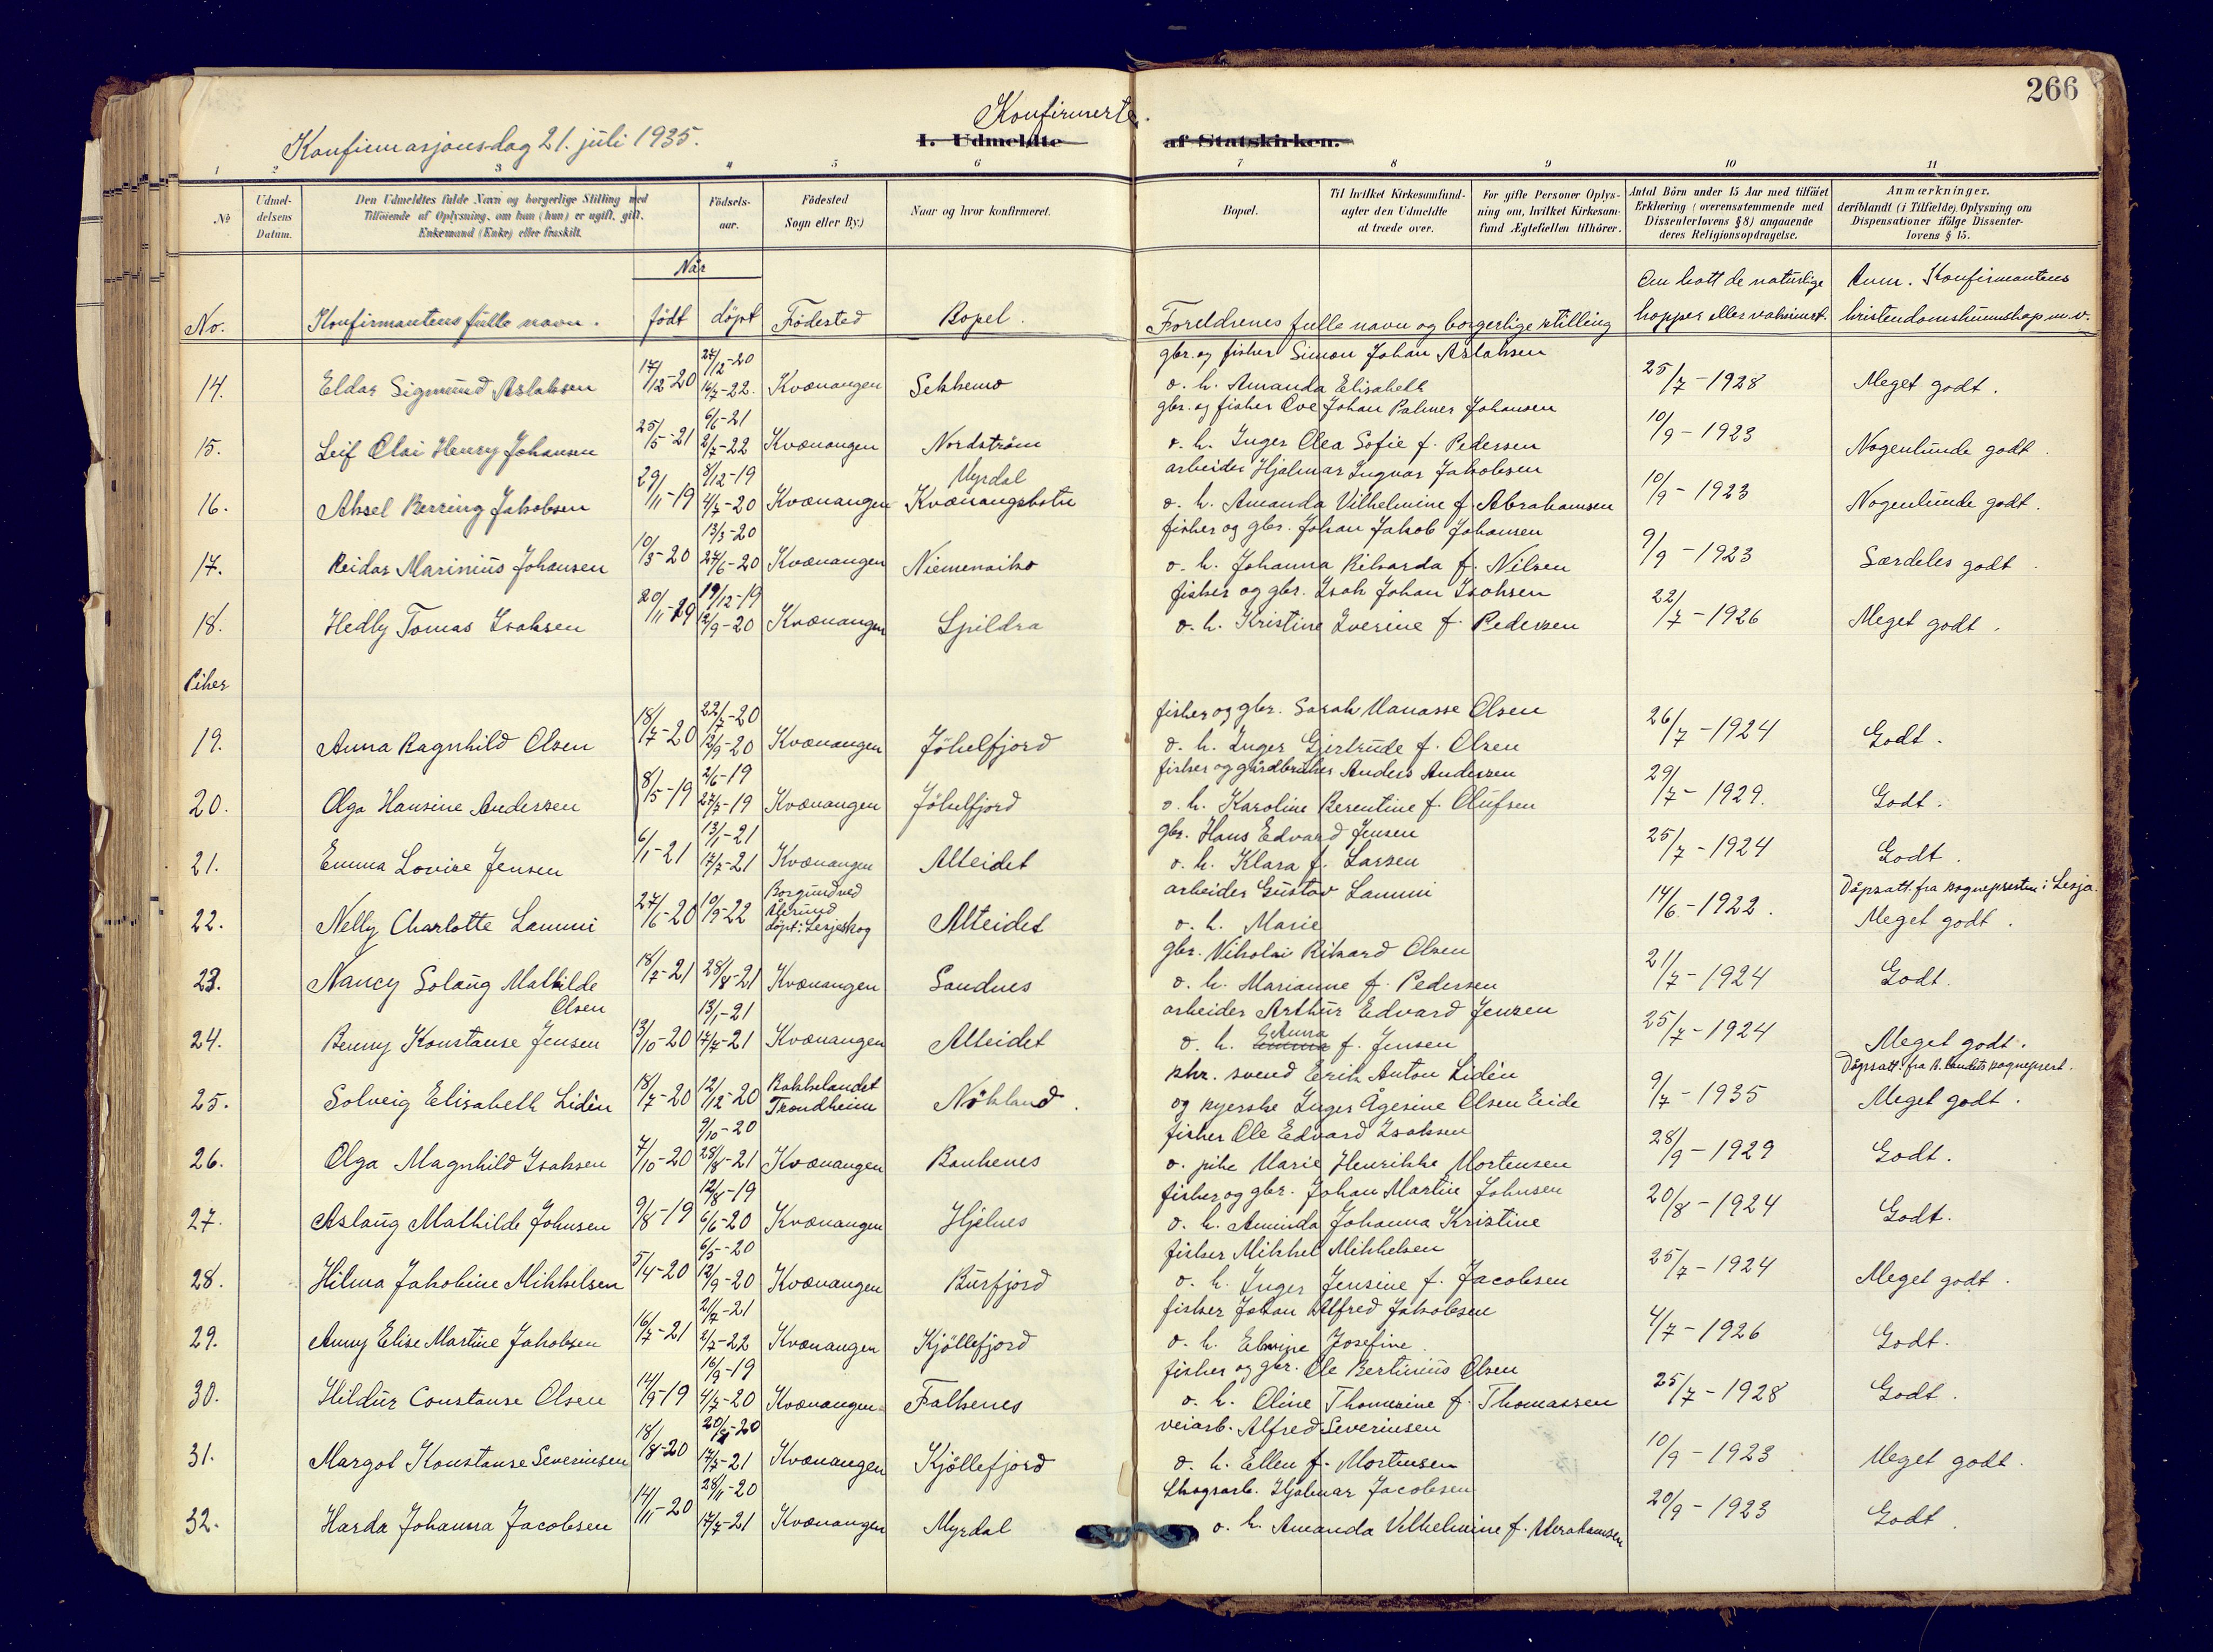 266
Konfirmerte.
Konfirmasjonsdag 21. juli 1935.
I. Udmeldte af Statskirken.
1 2 3 4 5 6 7 8 9 10 11
№
Udmel-
delsens
Datum.
Den Udmeldtes fulde Navn og borgerlige Stilling med
Tilföiende af Oplysning, om han (hun) er ugift, gift,
Enkemand (Enke) eller fraskilt.
Födsels-
aar.
Födested
Sogn eller By.)
Naar og hvor konfirmeret.
Bopæl.
Til hvilket Kirkesamfund-
agter den Udmeldte
at træde over.
For gifte Personer Oplys-
ning om, hvilket Kirkesam-
fund Ægtefællen tilhörer.
Antal Börn under 15 Aar med tilföiet
Erklæring (overensstemmende med
Dissenterlovens § 8) angaaende
deres Religionsopdragelse.
Anmærkninger.
deriblandt (i Tilfælde) Oplysning om
Dispensationer ifölge Dissenter-
lovens § 15.
Når
No. Konfirmantens fulle navn. födt döpt Födested Bopel. Foreldrenes fulle navn og borgerlige stilling
Om hatt de naturlige
kopper eller vaksinert.
Anm. Konfirmantens
kristendomskunnskap m.v.
14. Eldar Sigmund Aslaksen 17/12-20 27/12-20 14/7-22. Kvænangen Sekkemo
gbr. og fisker Simon Johan Aslaksen
o. h. Amanda Elisabeth 25/7-1928 Meget godt.
15. Leif Olai Henry Johansen 25/5-21 6/6-21 2/7-22 Kvænangen Nordström
gbr. og fisker Ove Johan Palmer Johansen
o. h. Inger Olea Sofie f. Pedersen 10/9-1923 Nogenlunde godt.
16. Aksel Berring Jakobsen 29/11-19 8/12-19 4/7-20 Kvænangen Myrdal Kvænangsbotn
arbeider Hjalmar Ingvar Jakobsen
o. h. Amanda Vilhelmine f. Abrahamsen 10/9-1923 Nogenlunde godt.
17. Reidar Marinius Johansen 10/3-20 13/3-20 27/6-20 Kvænangen Niemenaiko
fisker og gbr. Johan Jakob Johansen
o. h. Johanna Rikarda f. Nilsen 9/9-1923 Særdeles godt.
18. Hedly Tomas Isaksen 20/11-19 19/12-19 12/9-20 Kvænangen Spildra
fisker og gbr. Isak Johan Isaksen
o. h. Kristine Iverine f. Pedersen 22/7-1926 Meget godt.
Piker
19. Anna Ragnhild Olsen 18/7-20 22/7-20 12/9-20 Kvænangen Jökelfjord
fisker og gbr. Sarak Manasse Olsen
o. h. Inger Gjertrude f. Olsen 26/7-1924 Godt.
20. Olga Hansine Andersen 8/5-19 2/6-19 27/7-19 Kvænangen Jökelfjord
fisker og gårdbruker Anders Andersen
o. h. Karoline Berentine f. Olufsen 29/7-1929. Godt.
21. Emma Lovise Jensen 6/1-21 13/1-21 17/7-21 Kvænangen Alteidet
gbr. Hans Edvard Jensen
o. h. Klara f. Larsen 25/7-1924 Godt.
22. Nelly Charlotte Lammi 27/6-20 10/9-22 Borgund ved Ålesund döpt i Lesjeskog Alteidet
arbeider Gustav Lammi
o. h. Marie 14/6-1922. Dåpsatt. fra sognepresten i Lesja. Meget godt.
23. Nancy Solaug Mathilde Olsen 18/7-21 28/8-21 Kvænangen Sandnes
gbr. Nikolai Rikard Olsen
o. h. Marianne f. Pedersen 21/7-1924 Godt.
24. Benny Konstanse Jensen 13/10-20 13/1-21 17/7-21 Kvænangen Alteidet
arbeider Arthur Edvard Jensen
o. h. Anna f. Jensen 25/7-1924 Meget godt.
25. Solveig Elisabeth Lidén 18/7-20 12/12-20 Bakkelandet Trondheim Nökland.
skr. svend Erik Anton Lidén
og syerske Inger Ågesine Olsen Eide 9/7-1935 Dåpsatt. fra B. landets sogneprest. Meget godt.
26. Olga Magnhild Isaksen 7/10-20 9/10-20 28/8-21 Kvænangen Bankenes
fisker Ole Edvard Isaksen
o. pike Marie Henrikke Mortensen 28/9-1929 Godt.
27. Aslaug Mathilde Johnsen 9/8-19 12/8-19 6/6-20 Kvænangen Hjelnes
fisker og gbr. Johan Martin Johnsen
o. h. Aminda Johanna Kristine 20/8-1924 Godt.
28. Hilma Jakobine Mikkelsen 5/4-20 6/5-20 12/9-20 Kvænangen Burfjord
fisker Mikkel Mikkelsen
o. h. Inger Jensine f. Jacobsen 25/7-1924 Meget godt.
29. Anny Elise Martine Jakobsen 16/7-21 21/7-21 2/7-22 Kvænangen Kjöllefjord
fisker Johan Alfred Jakobsen
o. h. Elmine Josefine. 4/7-1926 Godt.
30. Hildur Constanse Olsen 14/9-19 16/9-19 4/7-20 Kvænangen Falkenes
fisker og gbr. Ole Bertinius Olsen
o. h. Oline Thomasine f. Thomassen 25/7-1928 Godt.
31. Margot Konstanse Severinsen 18/8-20 17/7-21 Kvænangen Kjöllefjord
veiarb. Alfred Severinsen
o. h. Ellen f. Mortensen 10/9-1923 Meget godt.
32. Harda Johanna Jacobsen 14/11-20 28/11-20 17/7-21 Kvænangen Myrdal
skogsarb. Hjalmar Jacobsen
o. h. Amanda Vilhelmine f. Abrahamsen 20/9-1923 Godt.